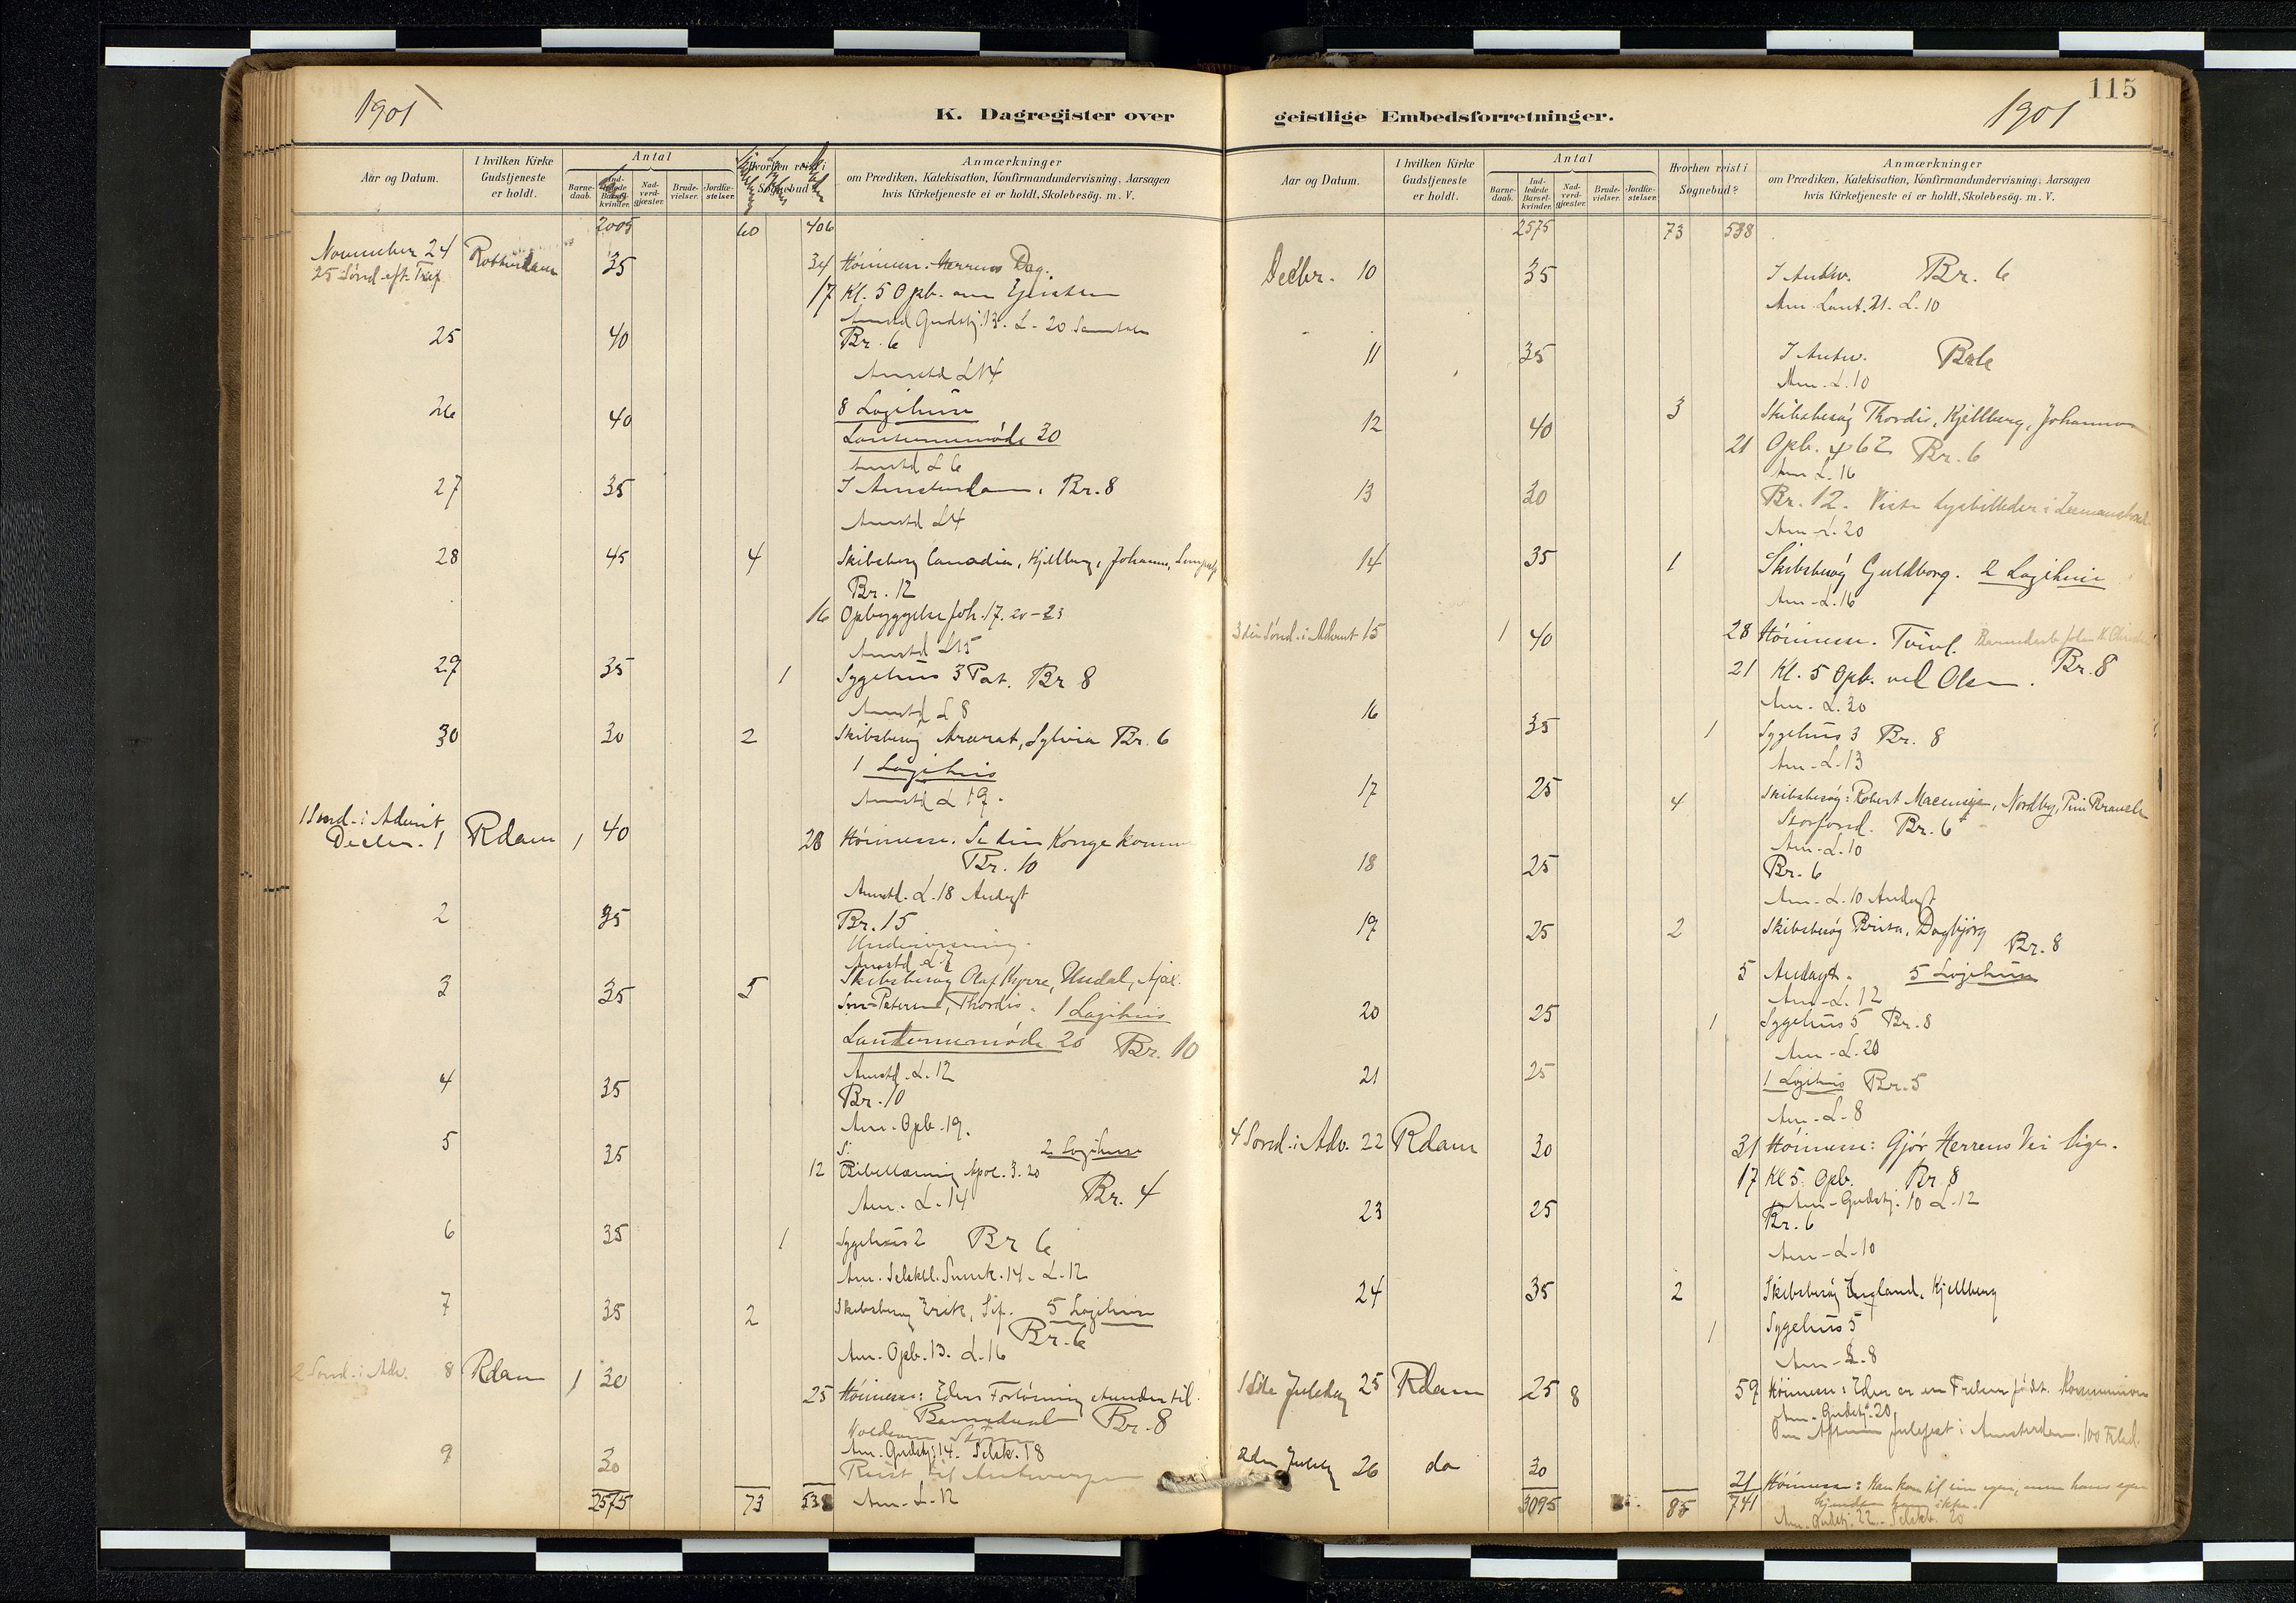 1901
K. Dagregister over
Aar og Datum.
I hvilken Kirke
Gudstjeneste
er holdt.
Antal
Barne-
daab.
Ind-
ledede
Barsel-
kvinder.
Nad-
verd-
gjæster.
Brude-
vielser.
Jordfæ-
stelser.
Hvorhen reist i
Sognebud?
Anmærkninger
om Prædiken, Katekisation, Konfirmandundervisning. Aarsagen
hvis Kirketjeneste ei er holdt, Skolebesög. m. V.
2005 60 406
November 24 Rotterdam 35 34 Høimesse. Herrens Dag.
25 Sønd. eft. Tref. 17 Kl. 5 Opb.
Amstd Gudstj. 13. L. 20
25 40 Br. 6
Amstd L 14
26 40 8 Logihuse
Lanternemøde 30
Amstd L 6
27 35 I Amsterdam. Br. 8
Amstd L 4
28 45 4 Skibsbesøg Canadia, Kjellberg, Johanna,
Br. 12
16 Opbyggelse Joh. 17. 20-23
Amstd L 15
29 35 1 Sygehus 3 Pat. Br 8
Amstd L 8
30 30 2 Skibsbesøg Ararat, Sylvia Br. 6
1 Logihus
Amstd L 19.
1 Sønd. i Advent
Decbr. 1 Rdam 1 40 28 Høimesse. Se din Konge kommer
Br. 10
Amstd. L. 18 Andagt
2 35 Br. 15
Undervisning.
Amstd L 7
3 35 5 Skibsbesøg Olaf Kyrre, Undal, Ajax.
Thordis. 1 Logihus
Lanternemøde 20 Br. 10
Amstd. L. 12
4 35 Br. 10
Am. Opb. 19.
5 35 2 Logihuse
12 Bibellæsning Apoc. 3. 20
Am. L. 14 Br. 4
6 35 1 Sygehus 2 Br 6
Am. Selskbl. 14. L. 12
7 35 2 Skibsbesøg Erik, Sif. 5 Logihuse
Br. 6
Am. Opb. 13. L. 16
2 Sønd. i Adv. 8 Rdam 1 30 25 Høimesse: Eders Forløsning stunder til.
Barnedaab Br. 8
Am. Gudstj. 14. Selsk. 18
9 30 Reist til Antwerpen
2575 73 538 Am. L. 12
115
1901
geistlige Embedsforretninger.
Aar og Datum.
I hvilken Kirke
Gudstjeneste
er holdt.
Antal
Barne-
daab.
Ind-
ledede
Barsel-
kvinder.
Nad-
verd-
gjæster.
Brude-
vielser.
Jordfæ-
stelser.
Hvorhen reist i
Sognebud?
Anmærkninger
om Prædiken, Katekisation, Konfirmandundervisning. Aarsagen
hvis Kirketjeneste ei er holdt, Skolebesög. m. V.
2575 73 538
Decbr. 10 35 I Antw. Br. 6
Am. Lant. 21. L. 10
11 35 I Antw.
Am. L. 10
12 40 3 Skibsbesøg Thordis, Kjellberg, Johanna
21 Opb. 462 Br. 6
Am L. 16
13 30 Br. 12. Viste Lysbilleder i
Am. L. 20
14 35 1 Skibsbesøg Guldborg. 2 Logihuse
Am. L. 16
3die Sønd. i Advent 15 1 40 28 Høimesse. Tvivl. Barnedaab
21 Kl. 5 Opb. ved Olsen. Br. 8
Am. L. 30
16 35 1 Sygehus 3 Br. 8
Am. L. 13
17 25 4 Skibsbesøg: Robert Macenzie, Nordby,
Storfond. Br. 6
Am. L. 10
18 25 Br. 6
Am. L. 10 Andagt
19 25 2 Skibsbesøg Brisa, Dagbjørg
Br. 8
5 Andagt. 5 Logihuse
Am. L. 12
20 25 1 Sygehus 5 Br. 8
Am. L. 20
21 25 1 Logihus Br. 5
Am. L. 8
4 Sønd. i Adv. 22 Rdam 30 31 Høimesse: Gjør Herrens Vei lige.
17 Kl 5. Opb. Br 8
Am. Gudstj. 10 L. 12
23 25 Br. 6
Am. L. 10
24 35 2 Skibsbesøg England, Kjellberg
1 Sygehus 5
Am. L. 8
1ste Juledag 25 Rdam 25 8 59 Høimesse: Eder er en Frelser født. Kommunion
Am. Gudstj. 20
Om Aftenen Julefest i Amsterdam.
2den Juledag 26 do 30 21 Høimesse: Han kom til sine egne, men hans egne
kjendte ham ikke.
3095 85 741 Am. Gudstj. 22. Selsk. 20